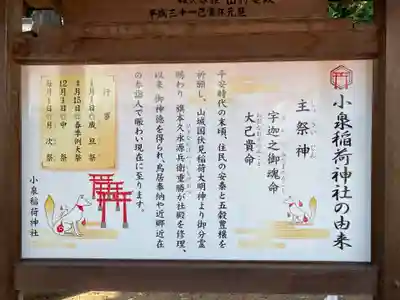 平成三十一己亥年元旦
小泉稲荷神社の由来
主祭神
宇迦之御魂命
大己貴命
平安時代の末頃、住民の安泰と五穀豊穣を
祈願し、山城国伏見稲荷大明神より御分霊
賜わり、旗本久永源兵衛重勝が社殿を修理、
以来、御神徳を得られ、鳥居奉納や近郷近在
のお詣人で賑わい現在に至ります。
行事
1月1日 歳旦祭
4月15日 春季例大祭
12月3日 中祭
毎月1日 月次祭
小泉稲荷神社